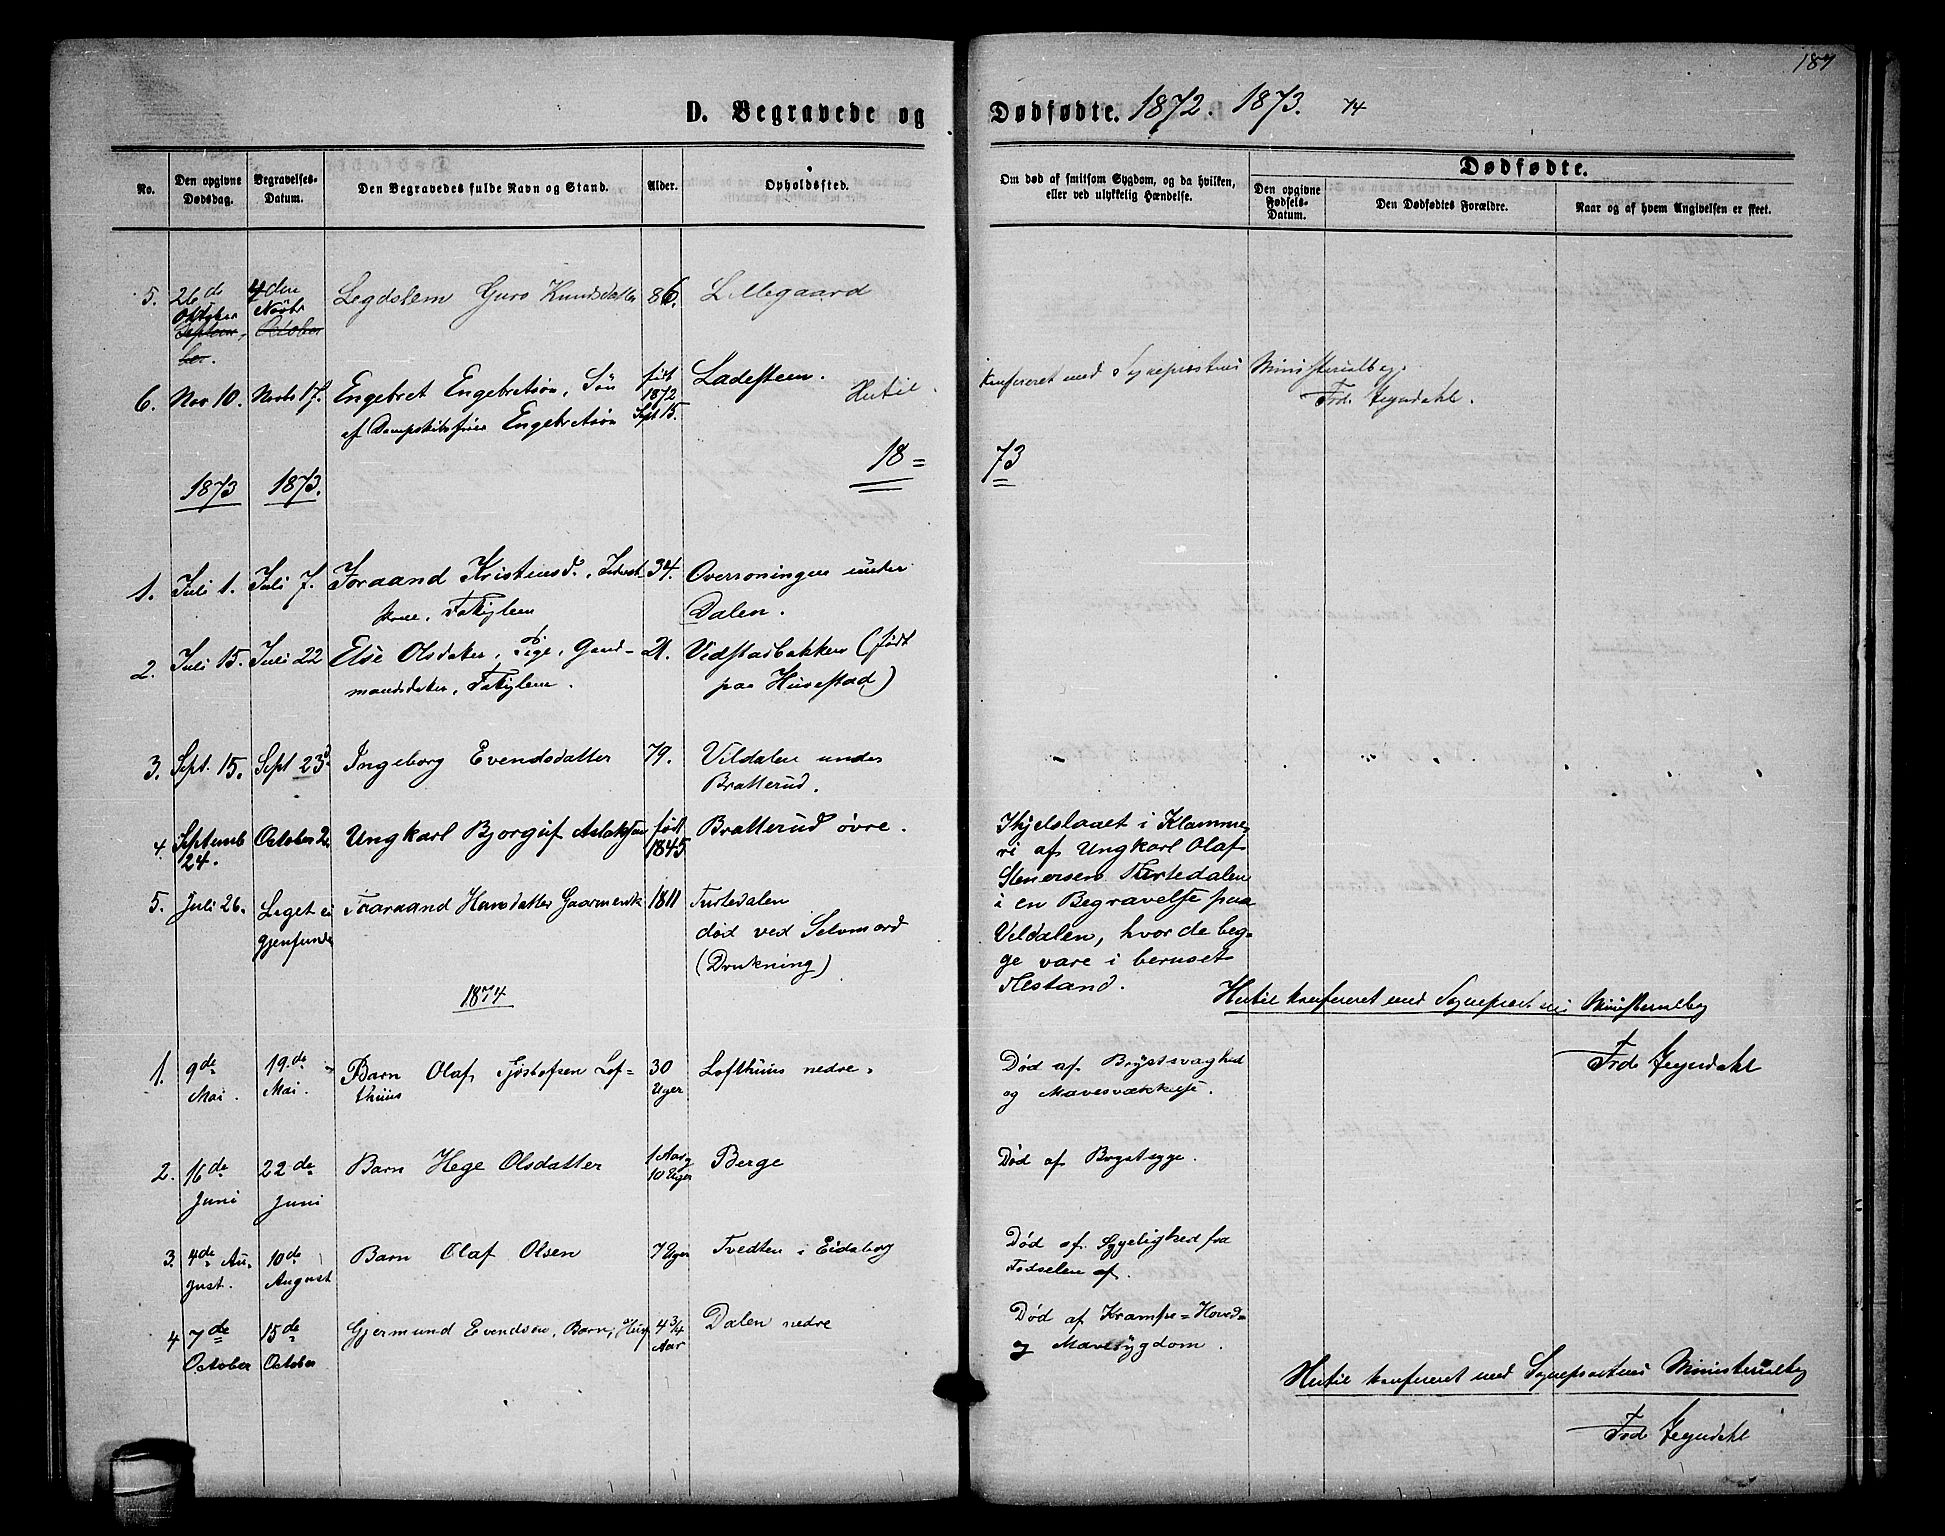 187
D. Begravede og Dødfødte. 1872. 1873. 74
No.
Den opgivne Dødsdag.
Begravelses-Datum.
Den Begravedes fulde Navn og Stand.
Alder.
Opholdssted.
Om død af smitsom Sygdom, og da hvilken,
eller ved ulykkelig Hændelse.
Dødfødte.
Den opgivne Fødsels-Datum.
Den Dødfødtes Forældre.
Naar og af hvem Angivelsen er skeet.
5. 26de Oktober Septem-ber. 4den Novbr October Legdslem Guro Knudsdatter 86. Lillegaard
6. Nov 10. Novb 17. Engebret Engebretsøn, Søn født 1872 Sept 15. Ladesteen.
af Dampskibsfører Engebretsøn
Hertil konfereret med Sognepræstens Ministerialbog.
Frd. Jeyndahl.
1873 1873. 18 = 73
1. Juli 1. Juli 7. Toraand Kristensd. 34. Overroningen under
Dalen.
2. Juli 15. Juli 22 Else Olsdater, Pige, Gaard- 21. Vidstadbakken (født
mandsdater. paa Huvestad)
3. Sept. 15. Sept 23d Ingeborg Evendsdatter 79. Vildalen under
Bratterud.
4. Septemb 24. October 2. Ungkarl Bjorguf Aslaksen født 1845 Bratterud øvre.
Ihjelslaaet i Klamme-
ri af Ungkarl Olaf
Stenersen Turtedalen
i en Begravelse paa
Vildalen, hvor de beg-
ge vare i beruset
Tilstand.
5. Juli 26. Liget ei gjenfundet Taraand Hansdatter 1811 Turtedalen
død ved Selvmord
(Drukning)
Hertil konfereret med Sognepræstens Ministerialbog
Frd. Jeyndahl
1874
1. 9de Mai. 19de Mai. Barn Olaf Tjøstolfsen Lof-
thuus 30 Uger Lofthuus nedre. Død af Brystsvaghed
og Mavesvækkelse.
2. 16de Juni 22de Juni Barn Hege Olsdatter 1 Aar 10 Uger Berge Død af Brystsyge.
3. 4de Au-gust. 10de August Barn Olaf Olsen 7 Uger Tvedten i Eidsborg Død af Sygelighed fra
Fødselen af.
4 7de October 15de October Gjermund Evendsen, Barn, 4 3/4 Aar Dalen nedre Død af Krampe= Hoved=
og Mavesygdom.
Hertil konfereret med Sognepræstens Ministerialbog
Frd. Jeyndahl